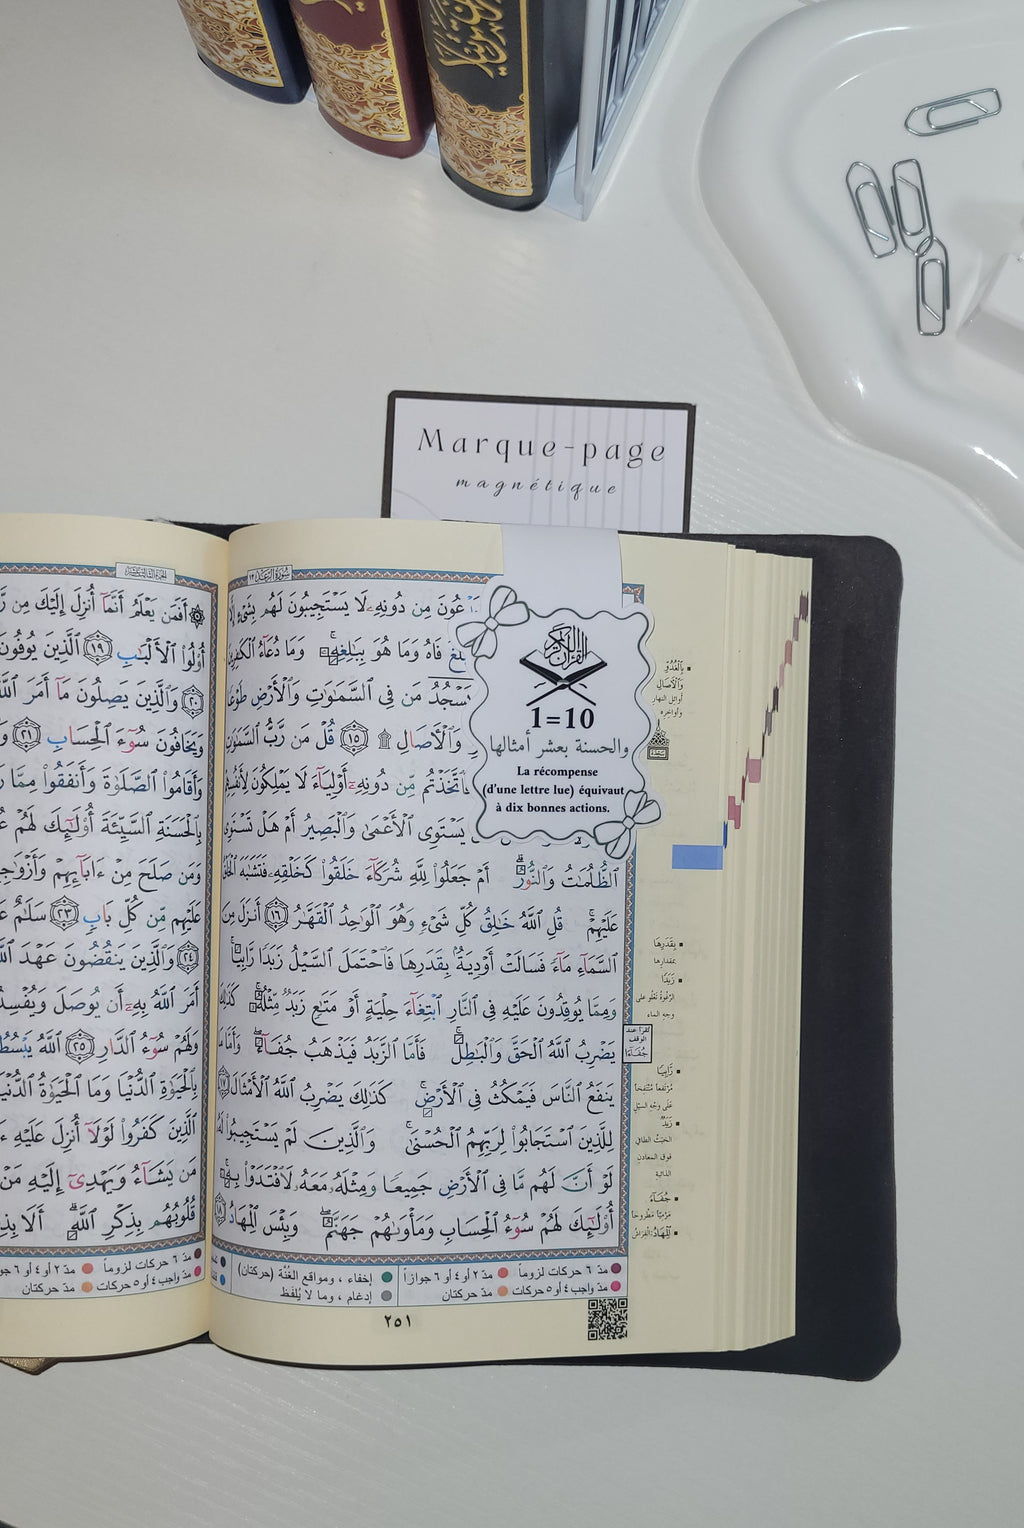 Marque-page
magnétique
سُورَةُ الرَّعْدِ ١٣
عُونَ مِن دُونِهِۦ لَا يَسْتَجِيبُونَ لَهُم بِشَىْءٍ إِلَّا
لُغَ فَاهُ وَمَا هُوَ بِبَٰلِغِهِۦۚ وَمَا دُعَآءُ ٱلْكَٰفِرِينَ
سْجُدُ مَن فِى ٱلسَّمَٰوَٰتِ وَٱلْأَرْضِ طَوْعًا
وَٱلْأٓصَالِ ۩ ﴿١٥﴾ قُلْ مَن رَّبُّ ٱلسَّمَٰوَٰتِ
ٱتَّخَذْتُم مِّن دُونِهِۦٓ أَوْلِيَآءَ لَا يَمْلِكُونَ لِأَنفُسِهِمْ
يَسْتَوِى ٱلْأَعْمَىٰ وَٱلْبَصِيرُ أَمْ هَلْ تَسْتَوِى
ٱلظُّلُمَٰتُ وَٱلنُّورُۗ أَمْ جَعَلُوا۟ لِلَّهِ شُرَكَآءَ خَلَقُوا۟ كَخَلْقِهِۦ فَتَشَٰبَهَ ٱلْخَلْقُ
عَلَيْهِمْۚ قُلِ ٱللَّهُ خَٰلِقُ كُلِّ شَىْءٍ وَهُوَ ٱلْوَٰحِدُ ٱلْقَهَّٰرُ ﴿١٦﴾ أَنزَلَ مِنَ
ٱلسَّمَآءِ مَآءً فَسَالَتْ أَوْدِيَةٌۢ بِقَدَرِهَا فَٱحْتَمَلَ ٱلسَّيْلُ زَبَدًا رَّابِيًاۚ
وَمِمَّا يُوقِدُونَ عَلَيْهِ فِى ٱلنَّارِ ٱبْتِغَآءَ حِلْيَةٍ أَوْ مَتَٰعٍ زَبَدٌ مِّثْلُهُۥۚ كَذَٰلِكَ
يَضْرِبُ ٱللَّهُ ٱلْحَقَّ وَٱلْبَٰطِلَۚ فَأَمَّا ٱلزَّبَدُ فَيَذْهَبُ جُفَآءًۖ وَأَمَّا مَا
يَنفَعُ ٱلنَّاسَ فَيَمْكُثُ فِى ٱلْأَرْضِۚ كَذَٰلِكَ يَضْرِبُ ٱللَّهُ ٱلْأَمْثَالَ ﴿١٧﴾
لِلَّذِينَ ٱسْتَجَابُوا۟ لِرَبِّهِمُ ٱلْحُسْنَىٰۚ وَٱلَّذِينَ لَمْ يَسْتَجِيبُوا۟ لَهُۥ
لَوْ أَنَّ لَهُم مَّا فِى ٱلْأَرْضِ جَمِيعًا وَمِثْلَهُۥ مَعَهُۥ لَٱفْتَدَوْا۟ بِهِۦٓۚ
أُو۟لَٰٓئِكَ لَهُمْ سُوٓءُ ٱلْحِسَابِ وَمَأْوَىٰهُمْ جَهَنَّمُۖ وَبِئْسَ ٱلْمِهَادُ ﴿١٨﴾
القرآن الكريم
1=10
والحسنة بعشر أمثالها
La récompense
(d'une lettre lue) équivaut
à dix bonnes actions.
بِالْغُدُوِّ
وَالْآصَالِ
أوائل النهار
وأواخره
بِقَدَرِهَا
بمقدارها
زَبَدًا
الرَّغْوَةُ تَعْلُو عَلَى
وجه الماء
تقرأ عند
الوقف
جُفَاءَا
رَّابِيًا
مُرْتَفِعًا مُنْتَفِخًا
عَلَى وَجْهِ السَّيْلِ
زَبَدٌ
الخَبَثُ الطافي
فوق المعادن
الذائبة
جُفَآءً
مَرْمِيًّا مَطْرُوحًا
ٱلْمِهَادُ: الفِرَاشُ
مدّ ٦ حركات لزوماً
مدّ ٢ أو ٤ أو ٦ جوازاً
إخفاء ، ومواقع الغُنَّة (حركتان)
مدّ واجب ٤ أو ٥ حركات
مدّ حركتان
إدغام ، وما لا يُلفظ
٢٥١
أَفَمَن يَعْلَمُ أَنَّمَآ أُنزِلَ إِلَيْكَ مِن
أُو۟لُوا۟ ٱلْأَلْبَٰبِ ﴿١٩﴾ ٱلَّذِينَ يُوفُونَ
﴿٢٠﴾ وَٱلَّذِينَ يَصِلُونَ مَآ أَمَرَ ٱللَّهُ
وَيَخَافُونَ سُوٓءَ ٱلْحِسَابِ ﴿٢١﴾
وَأَقَامُوا۟ ٱلصَّلَوٰةَ وَأَنفَقُوا۟ مِمَّا
بِٱلْحَسَنَةِ ٱلسَّيِّئَةَ أُو۟لَٰٓئِكَ لَهُمْ
وَمَن صَلَحَ مِنْ ءَابَآئِهِمْ وَأَزْوَٰجِهِمْ
عَلَيْهِم مِّن كُلِّ بَابٍ ﴿٢٣﴾ سَلَٰمٌ
﴿٢٤﴾ وَٱلَّذِينَ يَنقُضُونَ عَهْدَ ٱللَّهِ
أَمَرَ ٱللَّهُ بِهِۦٓ أَن يُوصَلَ وَيُفْسِدُونَ
وَلَهُمْ سُوٓءُ ٱلدَّارِ ﴿٢٥﴾ ٱللَّهُ يَبْسُطُ
بِٱلْحَيَوٰةِ ٱلدُّنْيَا وَمَا ٱلْحَيَوٰةُ ٱلدُّنْيَا
ٱلَّذِينَ كَفَرُوا۟ لَوْلَآ أُنزِلَ عَلَيْهِ
مَن يَشَآءُ وَيَهْدِىٓ إِلَيْهِ مَنْ
قُلُوبُهُم بِذِكْرِ ٱللَّهِۗ أَلَا
مدّ ٦ حركات لزوماً
مدّ ٢ أو ٤ أو ٦
مدّ واجب ٤ أو ٥ حركات
مدّ حركتان